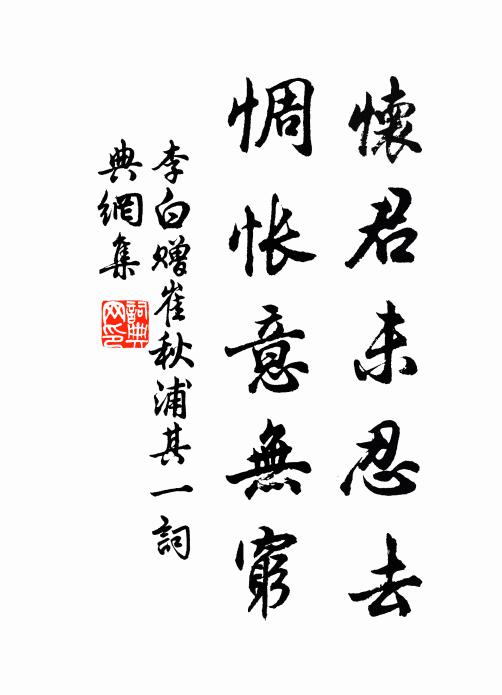 懷君未忍去
惆悵意無窮
李白赠崔秋浦其一詞
典網集
詞典
网印